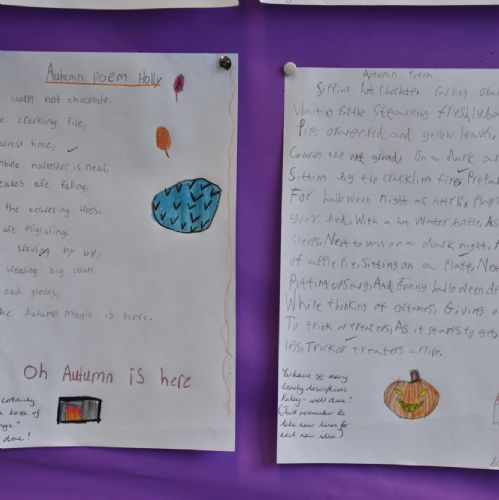 Autumn Poem Holly
warm hot chocolate,
crackling fire,
harvest time,
combine harvester is near,
are falling,
the towering trees,
are migrating,
waving by by,
Wearing big coats
and gloves,
the Autumn Magic is here.
Oh Autumn is here
certainly
a taste of
magic."
done!
Autumn Poem
Sitting hot choclate
Waiting for the Steaming freshly
Pie orange, red and yellow leaves,
the ground, On a dark
Sitting by the crackling fire,
For halloween night as netflix Plays
your bed, With a hot Water bottle, As
Next to you, on a dark night,
of apple Pie, Sitting on a Plate, Next
Putting up And funny halloween
While thinking of Giving
To trick or treaters, As it starts to get
less, Trick or treaters arrive.
You have so many
lovely descriptions
well done!
(Just remember to
take new lines for
each new idea.)